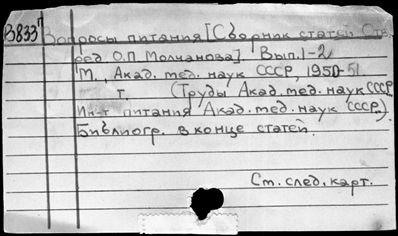 В833⁷ Вопросы питания [Сборник статей Отв.
ред О.П. Молчанова]. Вып. 1-2
М., Акад. мед. наук СССР, 1950-51
т. (Труды Акад. мед. наук СССР
Ин-т питания Акад. мед. наук СССР).
Библиогр. в конце статей.
См. след. карт.